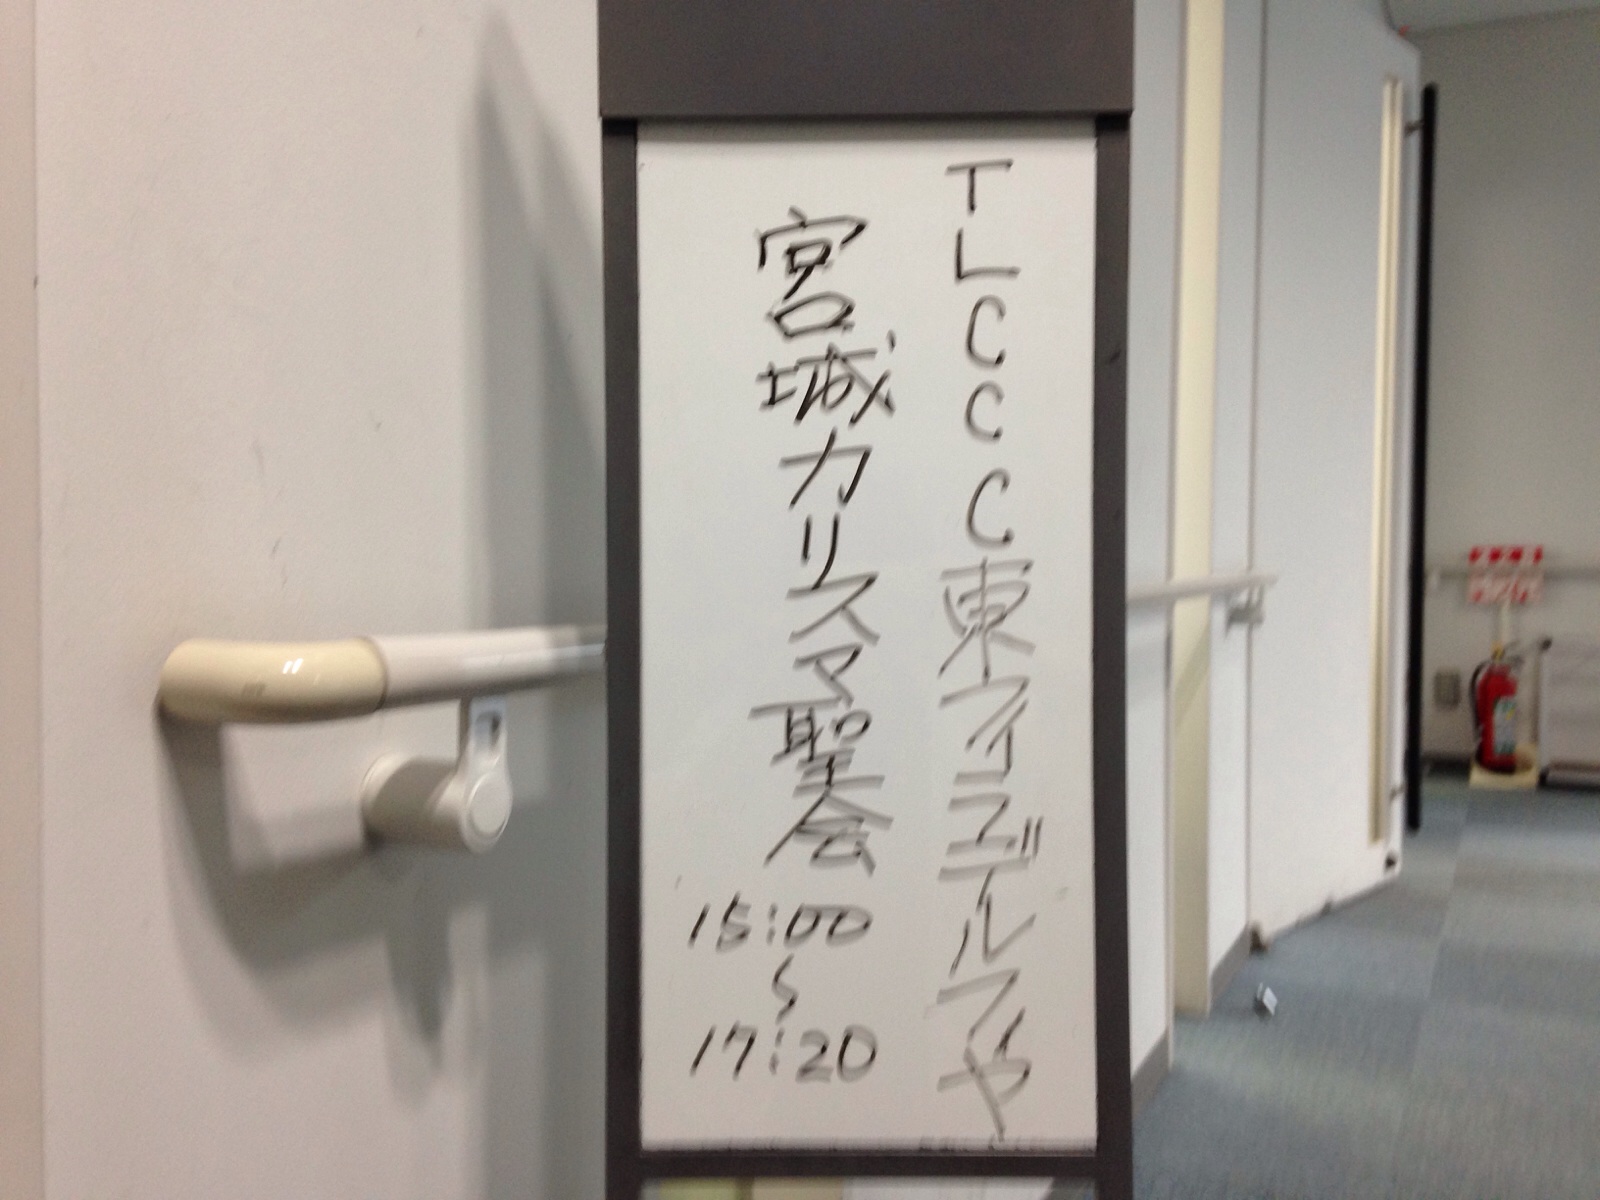 TLCCC東フィラデルフィヤ
宮城カリスマ聖会
15:00
〜
17:20